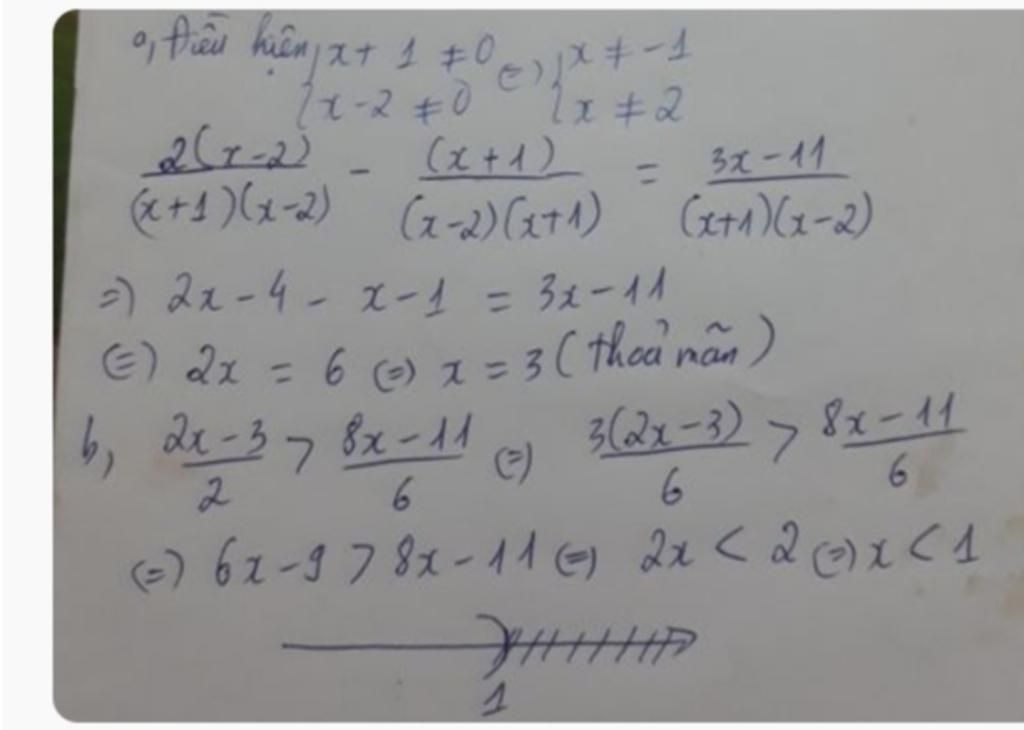 a, Điều kiện { x + 1 ≠ 0 (=) { x ≠ -1
{ x - 2 ≠ 0 { x ≠ 2
2(x-2)/(x+1)(x-2) - (x+1)/(x-2)(x+1) = 3x-11/(x+1)(x-2)
=) 2x - 4 - x - 1 = 3x - 11
(=) 2x = 6 (=) x = 3 (thoả mãn)
b, 2x-3/2 > 8x-11/6 (=) 3(2x-3)/6 > 8x-11/6
(=) 6x - 9 > 8x - 11 (=) 2x < 2 (=) x < 1
1